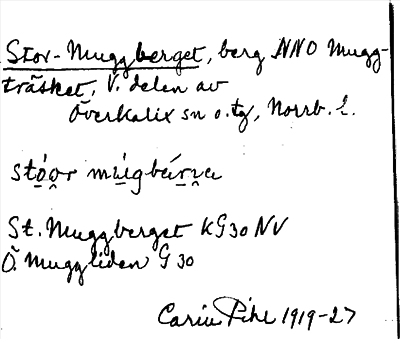 Stor-Muggberget, berg NNO Mugg-
träsket, V. delen av
Överkalix sn o. tg, Norrb. l.
stó̱o̯r mú̱igbár̯ɲa
St. Muggberget KG30 NV
Ö. Muggliden G 30
Carin Pihl 1919-27